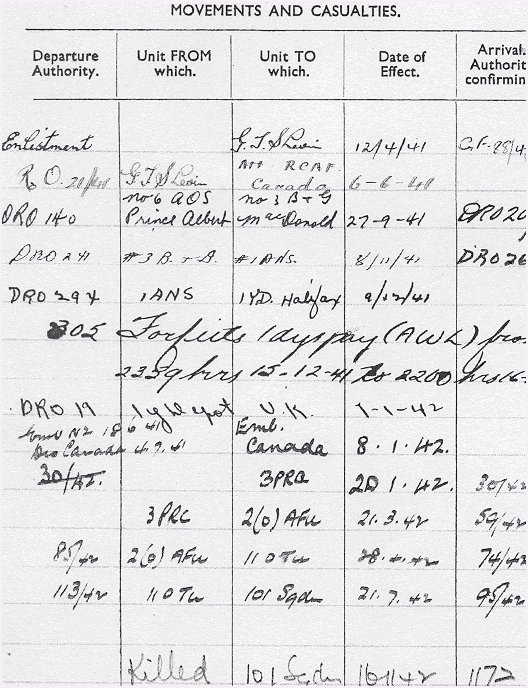 MOVEMENTS AND CASUALTIES.
Departure Authority. Unit FROM which. Unit TO which. Date of Effect. Arrival. Authorit confirmin
Enlistment G.T.S Levin 12/4/41 G.F. 28/4
Att RCAF
R.O. G.T.S Levin Canada
No 6 AOS No 3 B + G
DRO 140 Prince Albert MacDonald 27-9-41 DRO 20
DRO 241 #3 B. + G. #1 ANS. 8/11/41 DRO 26
DRO 294 1ANS 1 Y.D. Halifax 9/12/41
305 Forfeits 1 days pay (AWL) fro
2359 hrs 15-12-41 to 2200 hrs 16-
DRO 19 1 Y Depot U.K. 1-1-42
Emb NZ 18 6 41 Emb.
Dis Canada 4.7.41 Canada 8.1.42.
30/42. 3PRC 20.1.42. 30/42
3PRC 2(0) AFU 21.3.42 59/42
85/42 2(0) AFU 11 OTU 28.4.42 74/42
113/42 11 OTU 101 Sqdn 21.7.42 95/42
Killed 101 Sqdn 1172